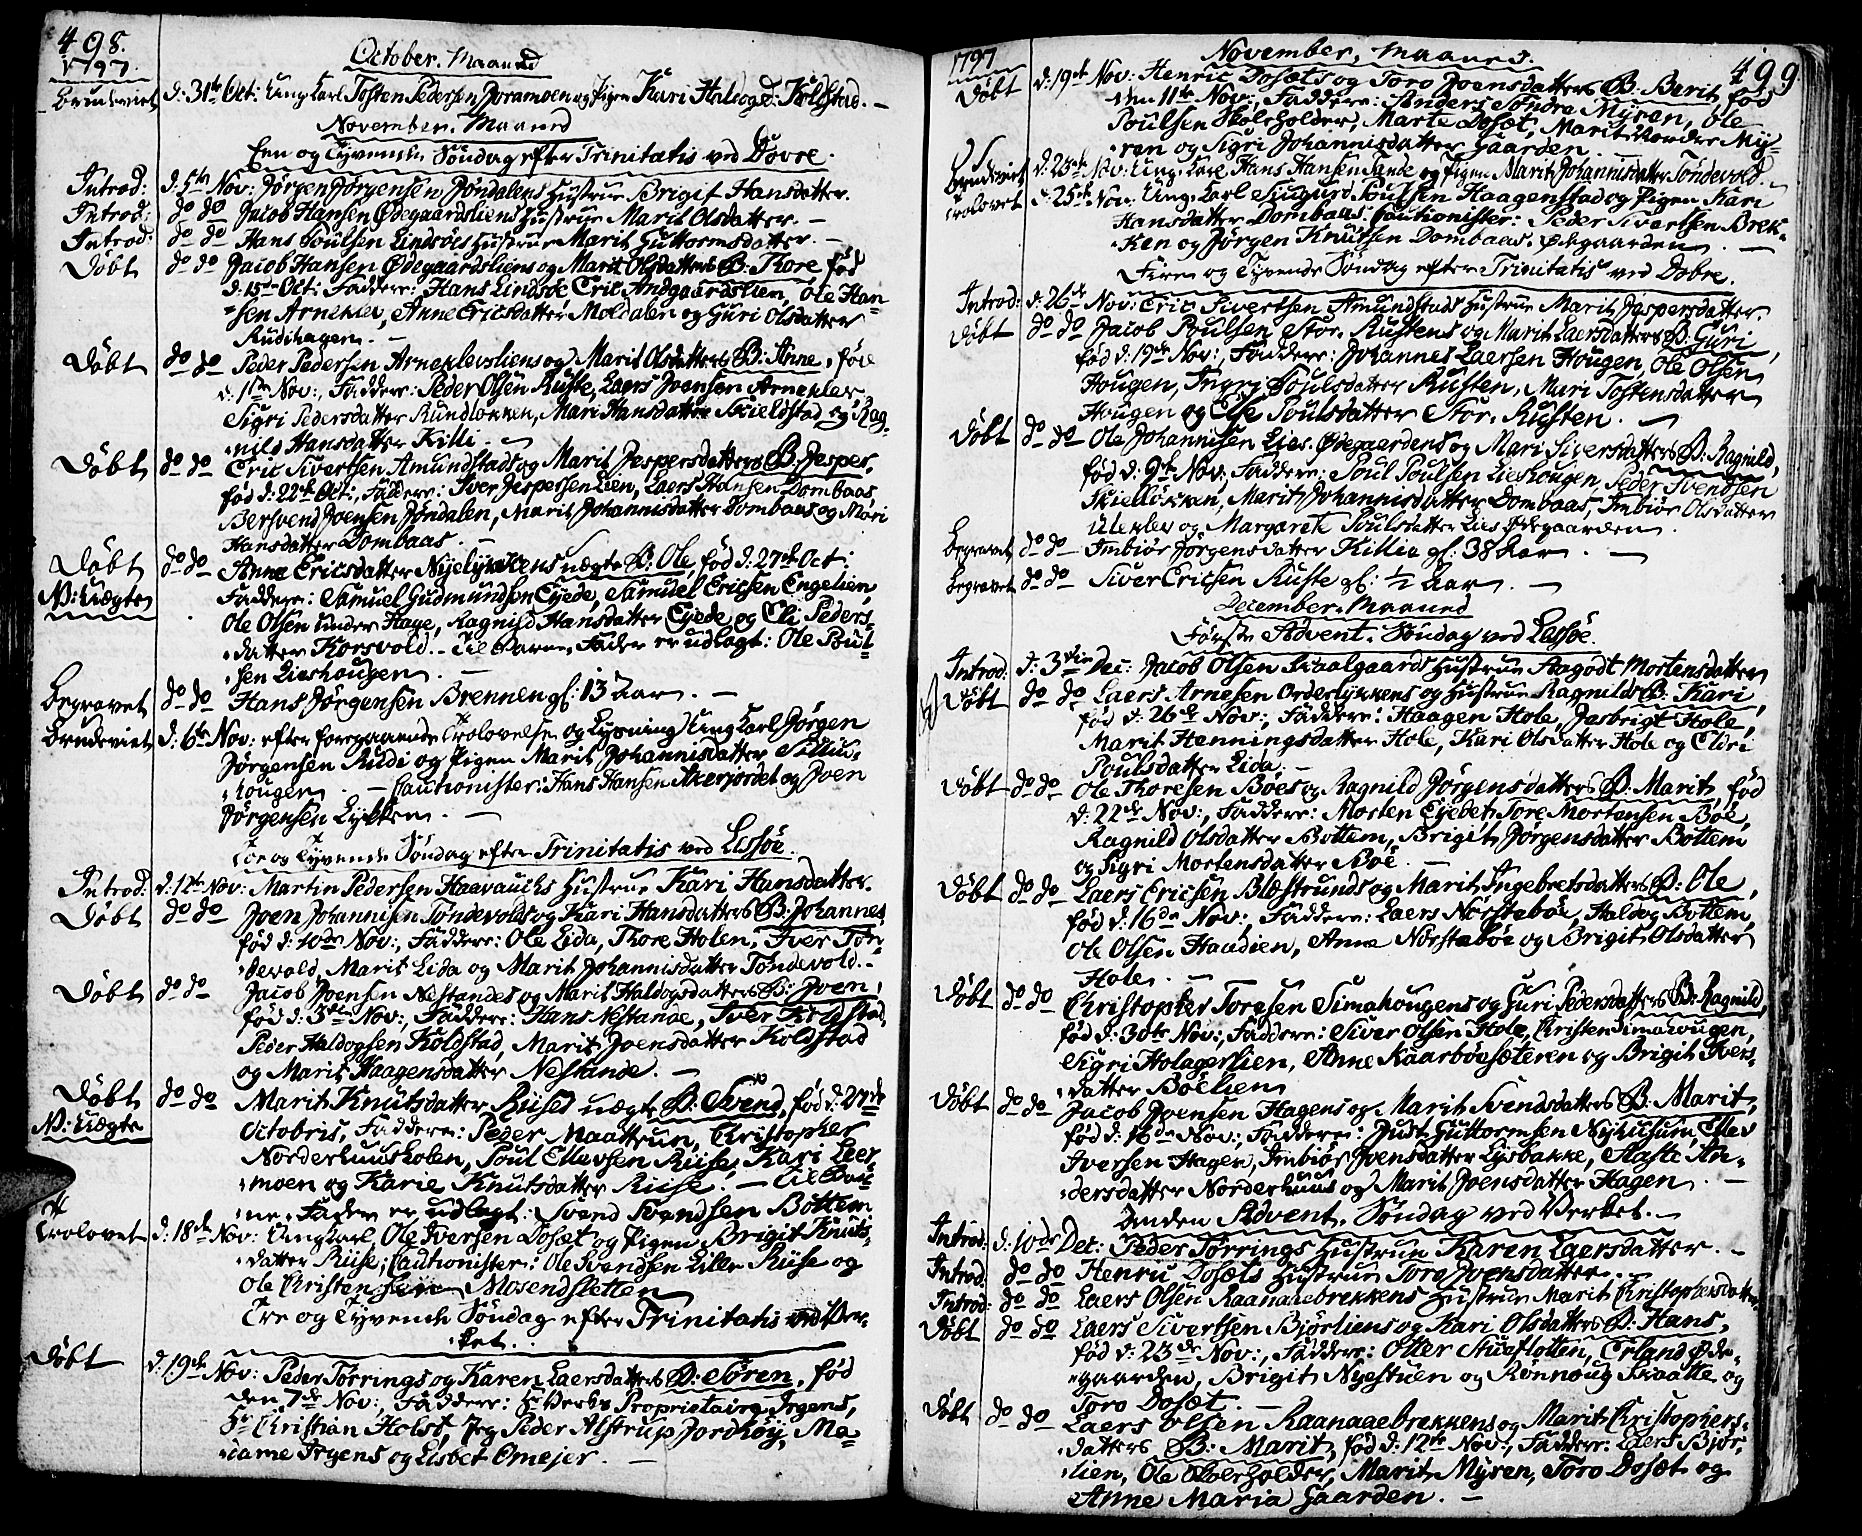 498.
1797.
October. Maaned
Brudeviet d: 31te Oct: Ung Karl Tosten Pedersen Joramoen og Pigen Kari Haldogsd: Koldstad. —
November. Maaned
Een og Tyvende Søndag efter Trinitatis ved Dovre.
Introd: d: 5te Nov: Jørgen Jørgensen Jøndalens Hustrue Brigit Hansdatter.
Introd: do do Jacob Hansen Ødegaardsliens Hustrue Marit Olsdatter. —
Introd: do do Hans Poulsen Lindsøes Hustrue Marit Guttormsdatter. —
Døbt do do Jacob Hansen Ødegaardsliens og Marit Olsdatters B: Thore, fød
d: 15de Oct: Faddere: Hans Lindsøe Eric Andgaardslien, Ole Han-
sen Arneklev, Anne Ericsdatter Moldalen og Guri Olsdatter
Rudihagen. —
Døbt do do Peder Pedersen Arneklevsliens og Marit Olsdatters B: Anne, fød
d: 1ste Nov:, Faddere: Peder Olsen Ruste, Laers Joensen Arneklev
Sigri Pedersdatter Rundløkken, Mari Hansdatter Skieldstad og Rag-
nild Hansdatter Killi. —
Døbt do do Eric Sivertsen Amundstads og Marit Jespersdatters B: Jesper,
fød d: 22de Oct:, Faddere: Iver Jespersen Lien, Laers Hansen Dombaas,
Bersvend Joensen Jøndalen, Marit Johannisdatter Dombaas og Mari
Hansdatter Dombaas. —
Døbt do do Anne Ericsdatter Nyelykkens uægte B: Ole, fød d: 27de Oct:
N: Uægte Faddere: Samuel Gudmundsen Eyede, Samuel Ericsen Engelien,
Ole Olsen under Hage, Ragnild Hansdatter Eyede og Eli Peders-
datter Korsvold. — Til Barne-Fader er udlagt: Ole Poul-
sen Lieshougen. —
Begravet do do Hans Jørgensen Brennen gl: 13 Aar. —
Brudeviet d: 6te Nov: efter foregaaende Trolovelse og Lysning Ung Karl Jørgen
Jørgensen Rudi og Pigen Marit Johannisdatter Sillie-
hougen. — Cautionister: Hans Hansen Akerjordet og Joen
Jørgensen Lykken. —
Toe og Tyvende Søndag efter Trinitatis ved Lessøe.
Introd: d: 12te Nov: Martin Pedersen Haavauchs Hustrue Kari Hansdatter.
Døbt do do Joen Johannisen Tøndevolds og Kari Hansdatters B: Johannes
fød d: 10de Nov:, Faddere: Ole Lida, Thore Holen, Iver Tøn-
devold, Marit Lida og Marit Johannisdatter Tøndevold. —
Døbt do do Jacob Joensen Nestandes og Marit Haldogsdatters B: Joen,
fød d: 3die Nov:, Faddere: Hans Nestande, Iver Koldstad,
Peder Haldogsen Koldstad, Marit Joensdatter Koldstad
og Marit Haagensdatter Nestande. —
Døbt do do Marit Knutsdatter Riises uægte B: Svend, fød d: 27de
N: Uægte Octobris, Faddere: Peder Maattrun, Christopher
Norderhuusholen, Poul Ellevsen Riise, Kari Leer-
moen og Karie Knutsdatter Riise. — Til Bar-
ne-Fader er udlagt: Svend Svendsen Bottem
Trolovet d: 18de Nov: Ung Karl Ole Iversen Dosæt og Pigen Brigit Knuts-
datter Riise; Cautionister: Ole Svendsen Lille Riise og
Ole Christensen Mosendsletten
Tre og Tyvende Søndag efter Trinitatis ved Ver-
ket. .
Døbt d: 19de Nov: Peder Tørrings og Karen Laersdatters B: Søren, fød
den 7de Nov:, Faddere: Hr Verks Proprietaire Irgens,
Hr Christian Holst, Jeg Peder Alstrup Jordhøy, Ma-
dame Irgens og Lisbet Omejer. —
1797
November. Maaned.
499
Døbt d: 19de Nov: Henric Dosæts og Toro Joensdatters B: Berit, fød
den 11te Nov:, Faddere: Anders Søndre Myren, Ole
Poulsen Skoleholder, Marte Dosæt, Marit Nordre My-
ren og Sigri Johannisdatter Gaarden. —
Brudeviet d: 23de Nov: Ung Karl Hans Hansen Tande og Pigen Marit Johannisdatter Tøndevold. —
Trolovet d: 25de Nov: Ung Karl Siugurd Poulsen Haagenstad og Pigen Kari
Hansdatter Dombaas. Cautionister: Peder Sivertsen Brek-
ken og Jørgen Knutsen Dombaas-Ødegaarden —
Fire og Tyvende Søndag efter Trinitatis ved Dovre.
Introd: d: 26de Nov: Eric Sivertsen Amundstads Hustrue Marit Jespersdatter.
Døbt do do Jacob Poulsen Stor-Rustens og Marit Laersdatters B: Guri,
fød d: 19de Nov:, Faddere: Johannes Laersen Hougen, Ole Olsen
Hougen, Ingri Poulsdatter Rusten, Mari Tostensdatter
Hougen og Else Poulsdatter Stor-Rusten. —
Døbt do do Ole Johannisen Lies-Ødegaardens og Mari Siversdatters B: Ragnild,
fød d: 9de Nov: Faddere: Poul Poulsen Lieshougen, Peder Svendsen
Skielløkken, Marit Johannisdatter Dombaas, Imbiør Olsdatter
Uleklev og Margarete Poulsdatter Lies Ødegaarden.
Begravet do do Imbiør Jørgensdatter Killie gl: 38 Aar. —
Begravet do do Siver Ericsen Ruste gl: 1/2 Aar. —
December. Maaned
Første Advent-Søndag ved Lessøe.
Introd: d: 3die Dec: Jacob Olsen Skaalgaards Hustrue Aagodt Mortensdatter
Døbt do do Laers Arnesen Orderlykkens og Hustrue Ragnilds B: Kari,
fød d: 26de Nov:, Faddere: Haagen Hole, Jasbrigt Hole,
Marit Henningsdatter Hole, Kari Olsdatter Hole og Eldri
Poulsdatter Lida. —
Døbt do do Ole Thoresen Bøes og Ragnild Jørgensdatters B: Marit, fød
d: 22de Nov:, Faddere: Morten Eyedet, Tore Mortensen Bøe,
Ragnild Olsdatter Bottem, Brigit Jørgensdatter Bottem
og Sigri Mortensdatter Bøe. —
Døbt do do Laers Ericsen Blæstrunds og Marit Ingebretsdatters B: Ole,
fød d: 16de Nov:, Faddere: Laers Norstebøe, Haldog Bottem,
Ole Olsen Haudien, Anne Norstebøe og Brigit Olsdatter
Hole. —
Døbt do do Christopher Toresen Simahougens og Guri Pedersdatters B: Ragnild,
fød d: 30te Nov:, Faddere: Siver Olsen Hole, Christen Simahougen,
Sigri Holagerslien, Anne Kaarbøesæteren og Brigit Ivers-
datter Bøelien
Døbt do do Jacob Joensen Hagens og Marit Svendsdatters B: Marit,
fød d: 16de Nov:, Faddere: Just Guttormsen Nyhusum, Ellev
Iversen Hagen, Imbiør Joensdatter Lysbakke, Aaste An-
dersdatter Norderhuus og Marit Joensdatter Hagen. —
Anden Advent-Søndag ved Verket. —
Introd: d: 10de Dec: Peder Tørrings Hustrue Karen Laersdatter. —
Introd: do do Henric Dosæts Hustrue Toro Joensdatter. —
Introd: do do Laers Olsen Raanaaebrekkens Hustrue Marit Christophersdatter.
Døbt do do Laers Sivertsen Bjørliens og Kari Olsdatters B: Hans,
fød d: 23de Nov:, Faddere: Otter Stueflotten, Erland Øde-
gaarden, Brigit Nyestuen og Rønnoug Skaatte og
Toro Dosæt. —
Døbt do do Laers Olsen Raanaaebrekkens og Marit Christophers-
datters B: Marit, fød d: 12te Nov:, Faddere: Laers Bjør-
lien, Ole Skoleholder, Marit Myren, Toro Dosæt og
Anne Maria Gaarden. —